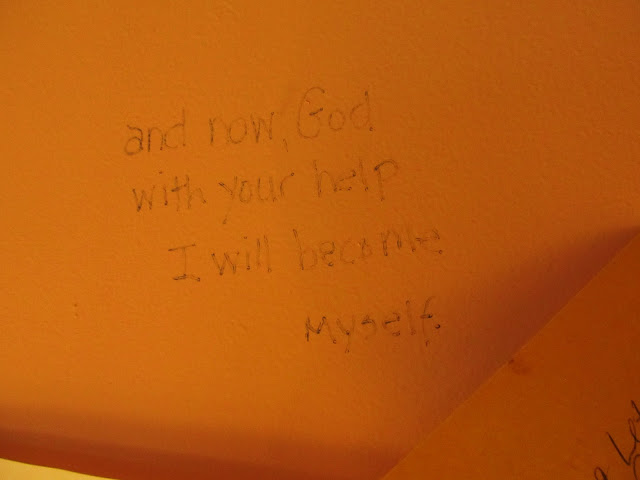 and now, God
with your help
I will become
myself.